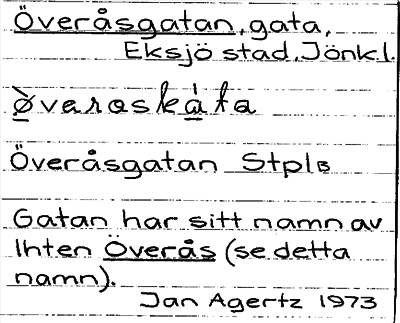 Överåsgatan, gata,
Eksjö stad, Jönk.l.
Överåsgatan Stplb
Gatan har sitt namn av
lhten Överås (se detta
namn).
Jan Agertz 1973